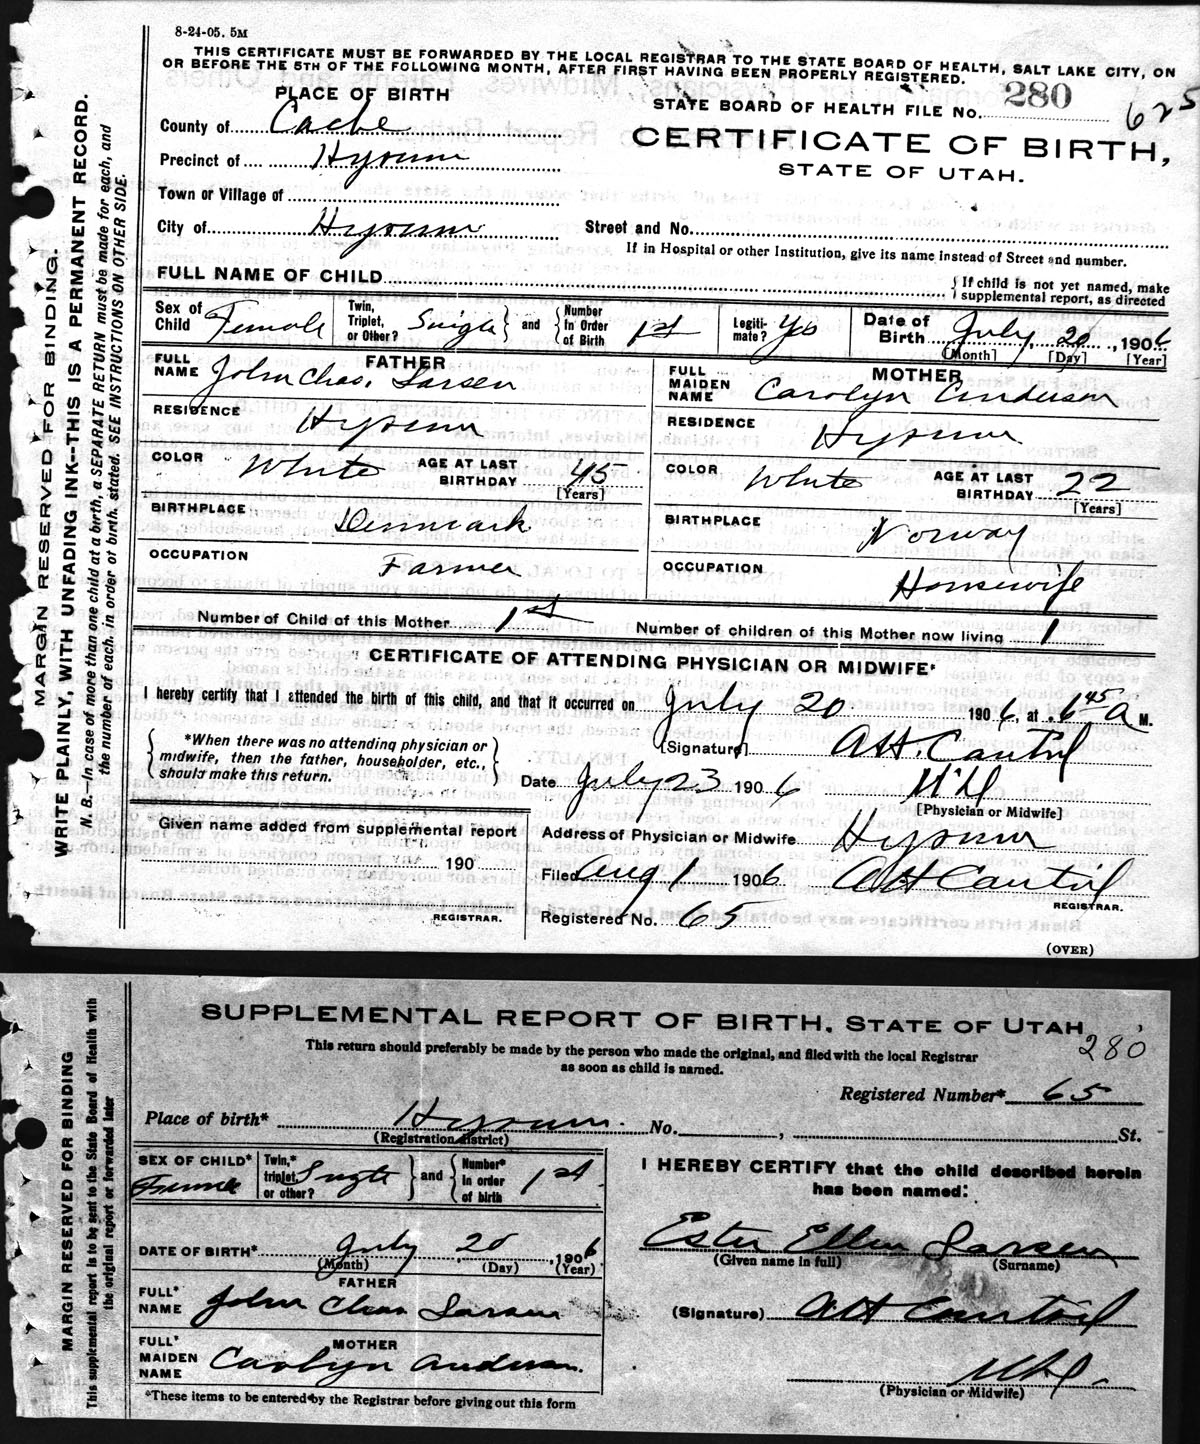 8-24-05. 5M
THIS CERTIFICATE MUST BE FORWARDED BY THE LOCAL REGISTRAR TO THE STATE BOARD OF HEALTH, SALT LAKE CITY, ON
OR BEFORE THE 5TH OF THE FOLLOWING MONTH, AFTER FIRST HAVING BEEN PROPERLY REGISTERED.
PLACE OF BIRTH
STATE BOARD OF HEALTH FILE No. 280
625
County of Cache
CERTIFICATE OF BIRTH,
Precinct of Hyrum
STATE OF UTAH.
Town or Village of
City of Hyrum Street and No.
If in Hospital or other Institution, give its name instead of Street and number.
FULL NAME OF CHILD { If child is not yet named, make supplemental report, as directed
Sex of Child Female Twin, Triplet, or Other? Single } and { Number In Order of Birth 1st Legiti- mate? Yes Date of Birth July 20, 1906
[Month] [Day] [Year]
FATHER
FULL NAME John Chas. Larsen
RESIDENCE Hyrum
COLOR White AGE AT LAST BIRTHDAY 45
[Years]
BIRTHPLACE Denmark
OCCUPATION Farmer
MOTHER
FULL MAIDEN NAME Carolyn Anderson
RESIDENCE Hyrum
COLOR White AGE AT LAST BIRTHDAY 22
[Years]
BIRTHPLACE Norway
OCCUPATION Housewife
Number of Child of this Mother 1st Number of children of this Mother now living 1
CERTIFICATE OF ATTENDING PHYSICIAN OR MIDWIFE*
I hereby certify that I attended the birth of this child, and that it occurred on July 20 1906, at 6 45 A M.
{ *When there was no attending physician or
midwife, then the father, householder, etc.,
should make this return. }
(Signature) A.H. Cantril
Date July 23 1906 M.D.
[Physician or Midwife]
Given name added from supplemental report
190
REGISTRAR.
Address of Physician or Midwife Hyrum
Filed Aug 1 1906 A H Cantril
REGISTRAR.
Registered No. 65
(OVER)
MARGIN RESERVED FOR BINDING.
WRITE PLAINLY, WITH UNFADING INK---THIS IS A PERMANENT RECORD.
N. B.—In case of more than one child at a birth, a SEPARATE RETURN must be made for each, and
the number of each, in order of birth, stated. SEE INSTRUCTIONS ON OTHER SIDE.
SUPPLEMENTAL REPORT OF BIRTH, STATE OF UTAH
280
This return should preferably be made by the person who made the original, and filed with the local Registrar
as soon as child is named.
Registered Number* 65
Place of birth* Hyrum. No. , St.
(Registration district)
SEX OF CHILD* Female Twin,* triplet, or other? Single } and { Number* in order of birth 1st
DATE OF BIRTH* July 20, 1906
(Month) (Day) (Year)
FATHER
FULL* NAME John Chas Larsen
MOTHER
FULL* MAIDEN NAME Carolyn Anderson.
*These items to be entered by the Registrar before giving out this form
I HEREBY CERTIFY that the child described herein
has been named:
Ester Ellen Larsen
(Given name in full) (Surname)
(Signature) A H Cantril
M.D.
(Physician or Midwife)
MARGIN RESERVED FOR BINDING
This supplemental report is to be sent to the State Board of Health with
the original report or forwarded later